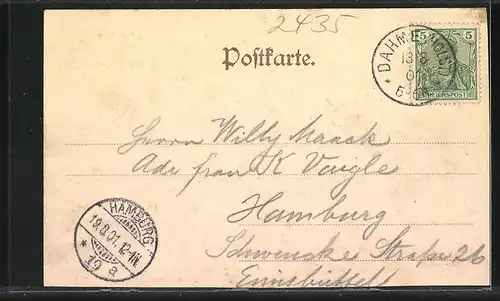 2435
Postkarte.
5 5
REICHSPOST
DAHME
13 8
Herrn Willy Maack
Adr frau K Voigle
Hamburg
Schwencke Straße 26
Eimsbüttel
HAMBURG
19.8.01. 12-1N
* 19 a